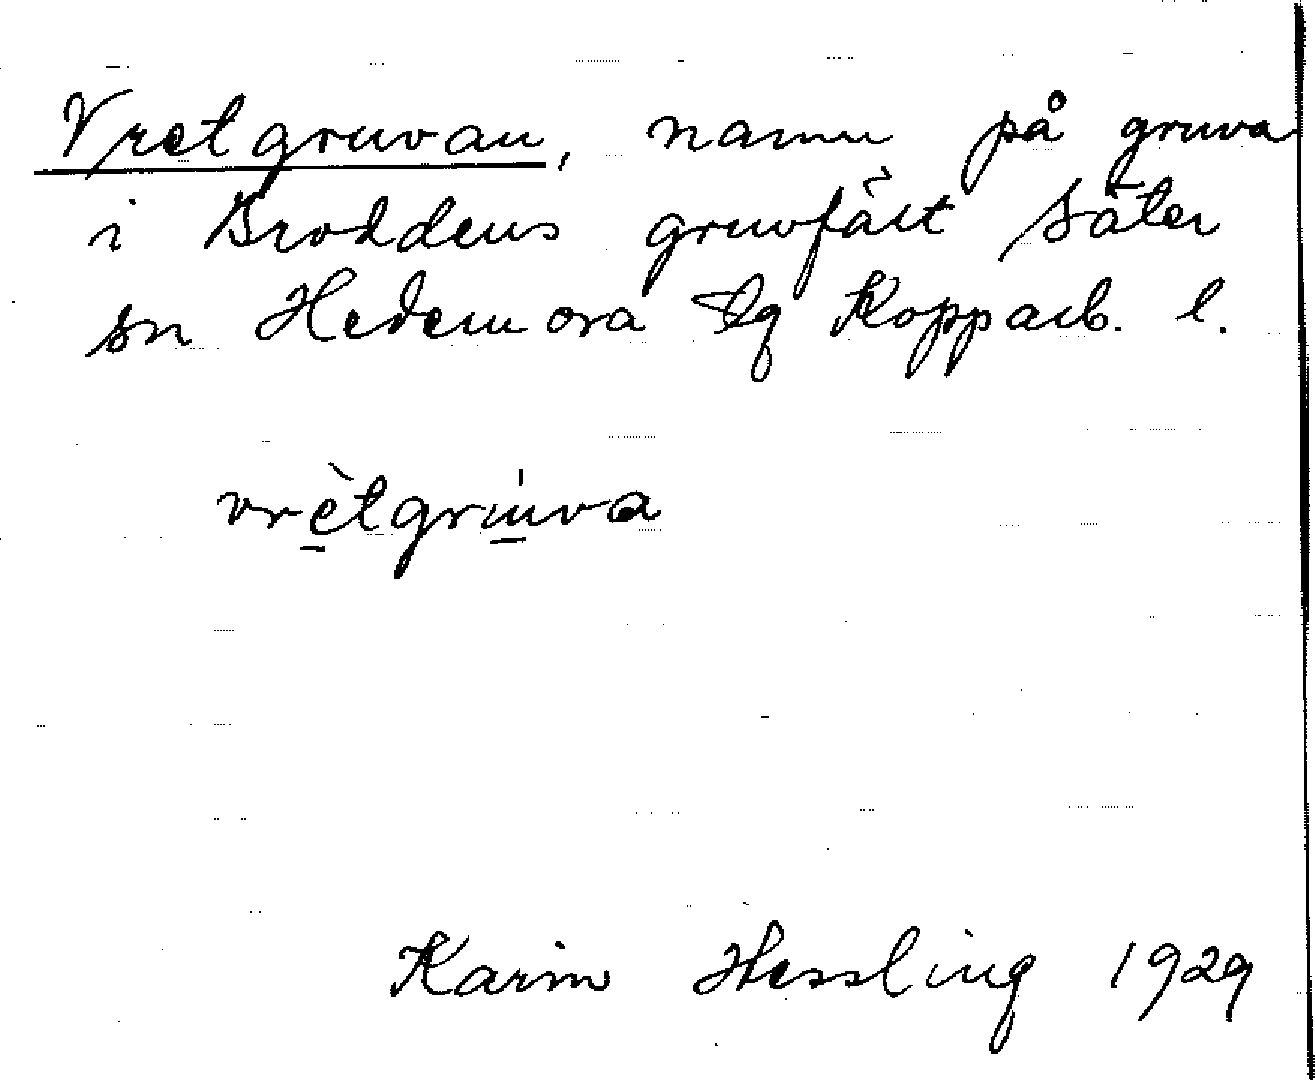 Vretgruvan, namn på gruva
i Broddens gruvfält Säter
sn Hedemora tg Kopparb. l.
vrètgrúva
Karin Hessling 1929